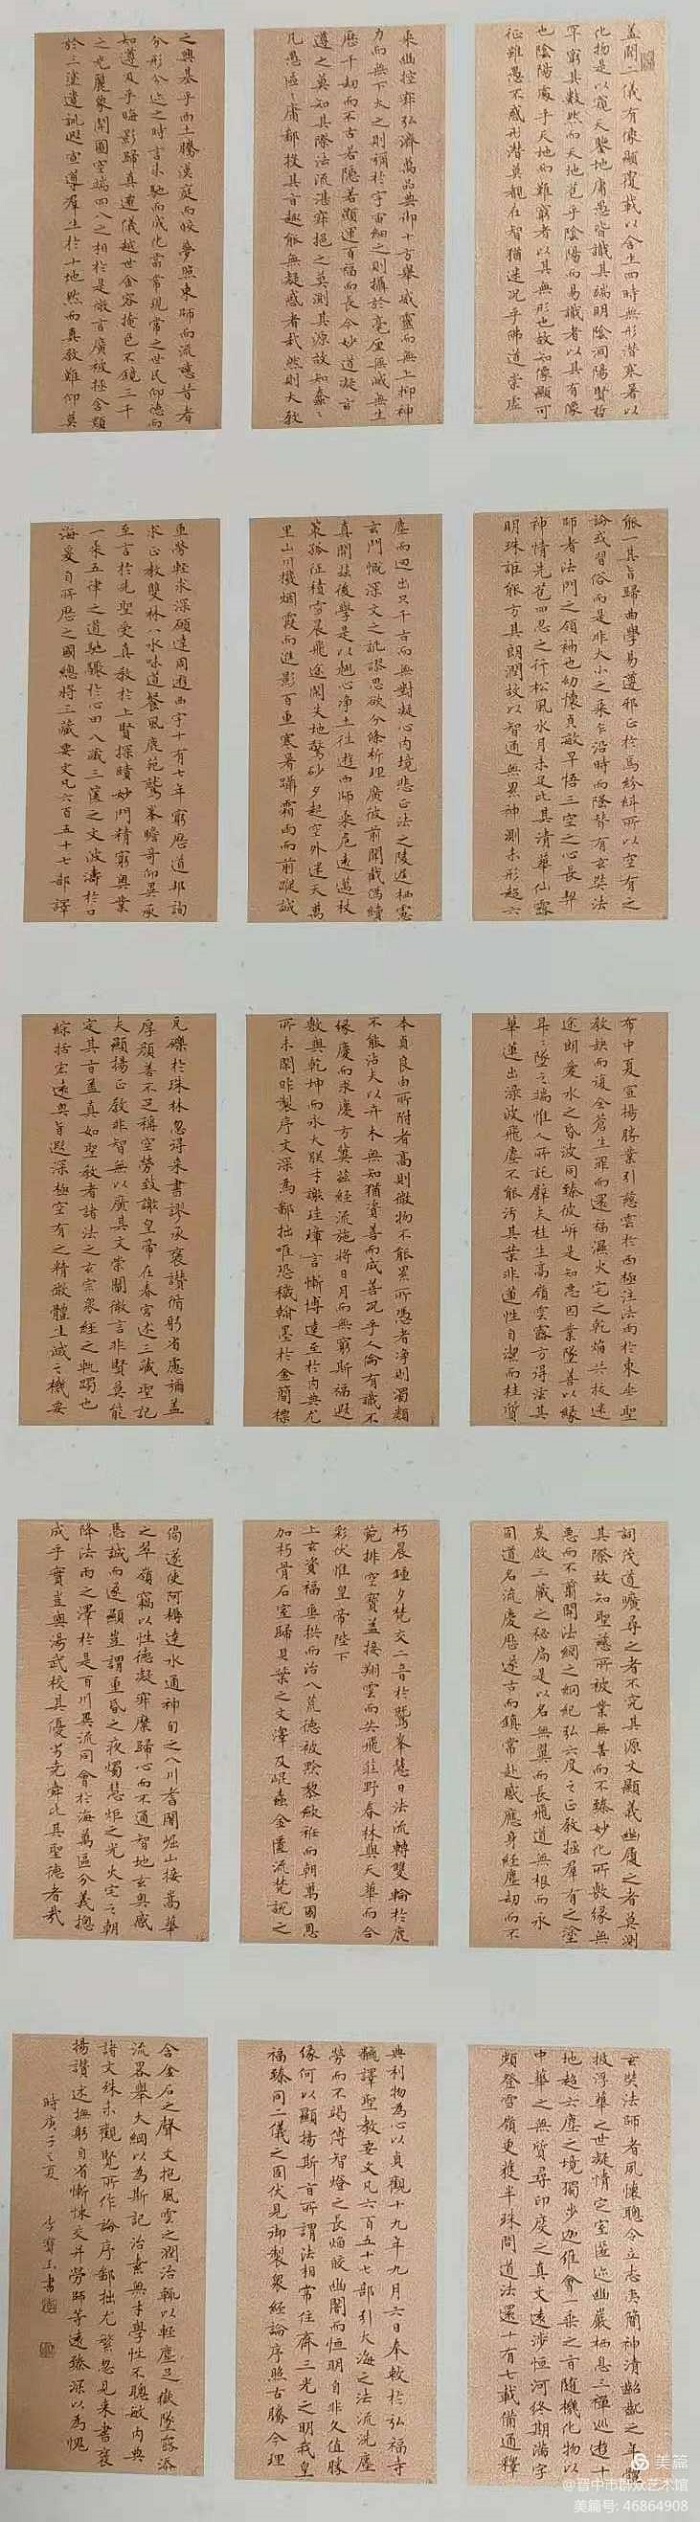 蓋聞二儀有像顯覆載以含生四時無形潛寒暑以
化物是以窺天鑒地庸愚皆識其端明陰洞陽賢哲
罕窮其數然而天地苞乎陰陽而易識者以其有像
也陰陽處乎天地而難窮者以其無形也故知像顯可
征雖愚不惑形潛莫覩在智猶迷況乎佛道崇虛
乘幽控寂弘濟萬品典御十方舉威靈而無上抑神
力而無下大之則彌於宇宙細之則攝於毫厘無滅無生
歷千劫而不古若隱若顯運百福而長今妙道凝玄
遵之莫知其際法流湛寂挹之莫測其源故知蠢〻
凡愚區〻庸鄙投其旨趣能無疑惑者哉然則大教
之興基乎西土騰漢庭而皎夢照東域而流慈昔者
分形分跡之時言未馳而成化當常現常之世民仰德而
知遵及乎晦影歸真遷儀越世金容掩色不鏡三千
之光麗象開圖空端四八之相於是微言廣被拯含類
於三塗遺訓遐宣導群生於十地然而真教難仰莫
能一其旨歸曲學易遵邪正於焉紛糾所以空有之
論或習俗而是非大小之乘乍沿時而隆替有玄奘法
師者法門之領袖也幼懷貞敏早悟三空之心長契
神情先苞四忍之行松風水月未足比其清華仙露
明珠詎能方其朗潤故以智通無累神測未形超六
塵而迥出只千古而無對凝心內境悲正法之陵遲栖慮
玄門慨深文之訛謬思欲分條析理廣彼前聞截偽續
真開茲後學是以翹心淨土往遊西域乘危遠邁杖
策孤征積雪晨飛途閒失地驚砂夕起空外迷天萬
里山川撥煙霞而進影百重寒暑躡霜雨而前蹤誠
重勞輕求深願達周遊西宇十有七年窮歷道邦詢
求正教雙林八水味道餐風鹿菀鷲峯瞻奇仰異承
至言於先聖受真教於上賢探賾妙門精窮奧業
一乘五律之道馳驟於心田八藏三篋之文波濤於口
海爰自所歷之國總將三藏要文凡六百五十七部譯
布中夏宣揚勝業引慈雲於西極注法雨於東垂聖
教缺而復全蒼生罪而還福濕火宅之乾焰共拔迷
途朗愛水之昏波同臻彼岸是知惡因業墜善以緣
昇〻墜之端惟人所託譬夫桂生高嶺雲露方得泫其
華蓮出淥波飛塵不能汚其葉非蓮性自潔而桂質
本貞良由所附者高則微物不能累所憑者淨則濁類
不能沾夫以卉木無知猶資善而成善況乎人倫有識不
緣慶而求慶方冀茲經流施將日月而無窮斯福遐
敷與乾坤而永大朕才謝珪璋言慚博達至於內典尤
所未閑昨製序文深為鄙拙唯恐穢翰墨於金簡標
瓦礫於珠林忽得來書謬承褒讚循躬省慮彌蓋
厚顏善不足稱空勞致謝皇帝在春宮述三藏聖記
夫顯揚正教非智無以廣其文崇闡微言非賢莫能
定其旨蓋真如聖教者諸法之玄宗眾經之軌躅也
綜括宏遠奧旨遐深極空有之精微體生滅之機要
詞茂道曠尋之者不究其源文顯義幽履之者莫測
其際故知聖慈所被業無善而不臻妙化所敷緣無
惡而不翦開法網之綱紀弘六度之正教拯群有之塗
炭啟三藏之秘扃是以名無翼而長飛道無根而永
固道名流慶歷遂古而鎮常赴感應身經塵劫而不
朽晨鐘夕梵交二音於鷲峯慧日法流轉雙輪於鹿
菀排空寶蓋接翔雲而共飛莊野春林與天華而合
彩伏惟皇帝陛下
上玄資福垂拱而治八荒德被黔黎斂衽而朝萬國恩
加朽骨石室歸貝葉之文澤及昆蟲金匱流梵說之
偈遂使阿耨達水通神甸之八川耆闍崛山接嵩華
之翠嶺竊以性德凝寂糜歸心而不通智地玄奧感
懇誠而遂顯豈謂重昏之夜燭慧炬之光火宅之朝
降法雨之澤於是百川異流同會於海萬區分義揔
成乎實豈與湯武校其優劣堯舜比其聖德者哉
玄奘法師者夙懷聰令立志夷簡神清齠齔之年體
拔浮華之世凝情定室匿迹幽巖栖息三禪巡遊十
地超六塵之境獨步迦維會一乘之旨隨機化物以
中華之無質尋印度之真文遠涉恒河終期滿字
頻登雪嶺更獲半珠問道法還十有七載備通釋
典利物為心以貞觀十九年九月六日奉敕於弘福寺
翻譯聖教要文凡六百五十七部引大海之法流洗塵
勞而不竭傳智燈之長焰皎幽闇而恒明自非久值勝
緣何以顯揚斯旨所謂法相常住齊三光之明我皇
福臻同二儀之固伏見御製眾經論序照古騰今理
含金石之聲文抱風雲之潤治輒以輕塵足嶽墜露添
流略舉大綱以為斯記治素無才學性不聰敏內典
諸文殊未觀覽所作論序鄙拙尤繁忽見來書褒
揚讚述撫躬自省慚悚交并勞師等遠臻深以為愧
時庚子之夏 李寶玉書
美篇
@晋中市群众艺术馆
美篇号: 46864908